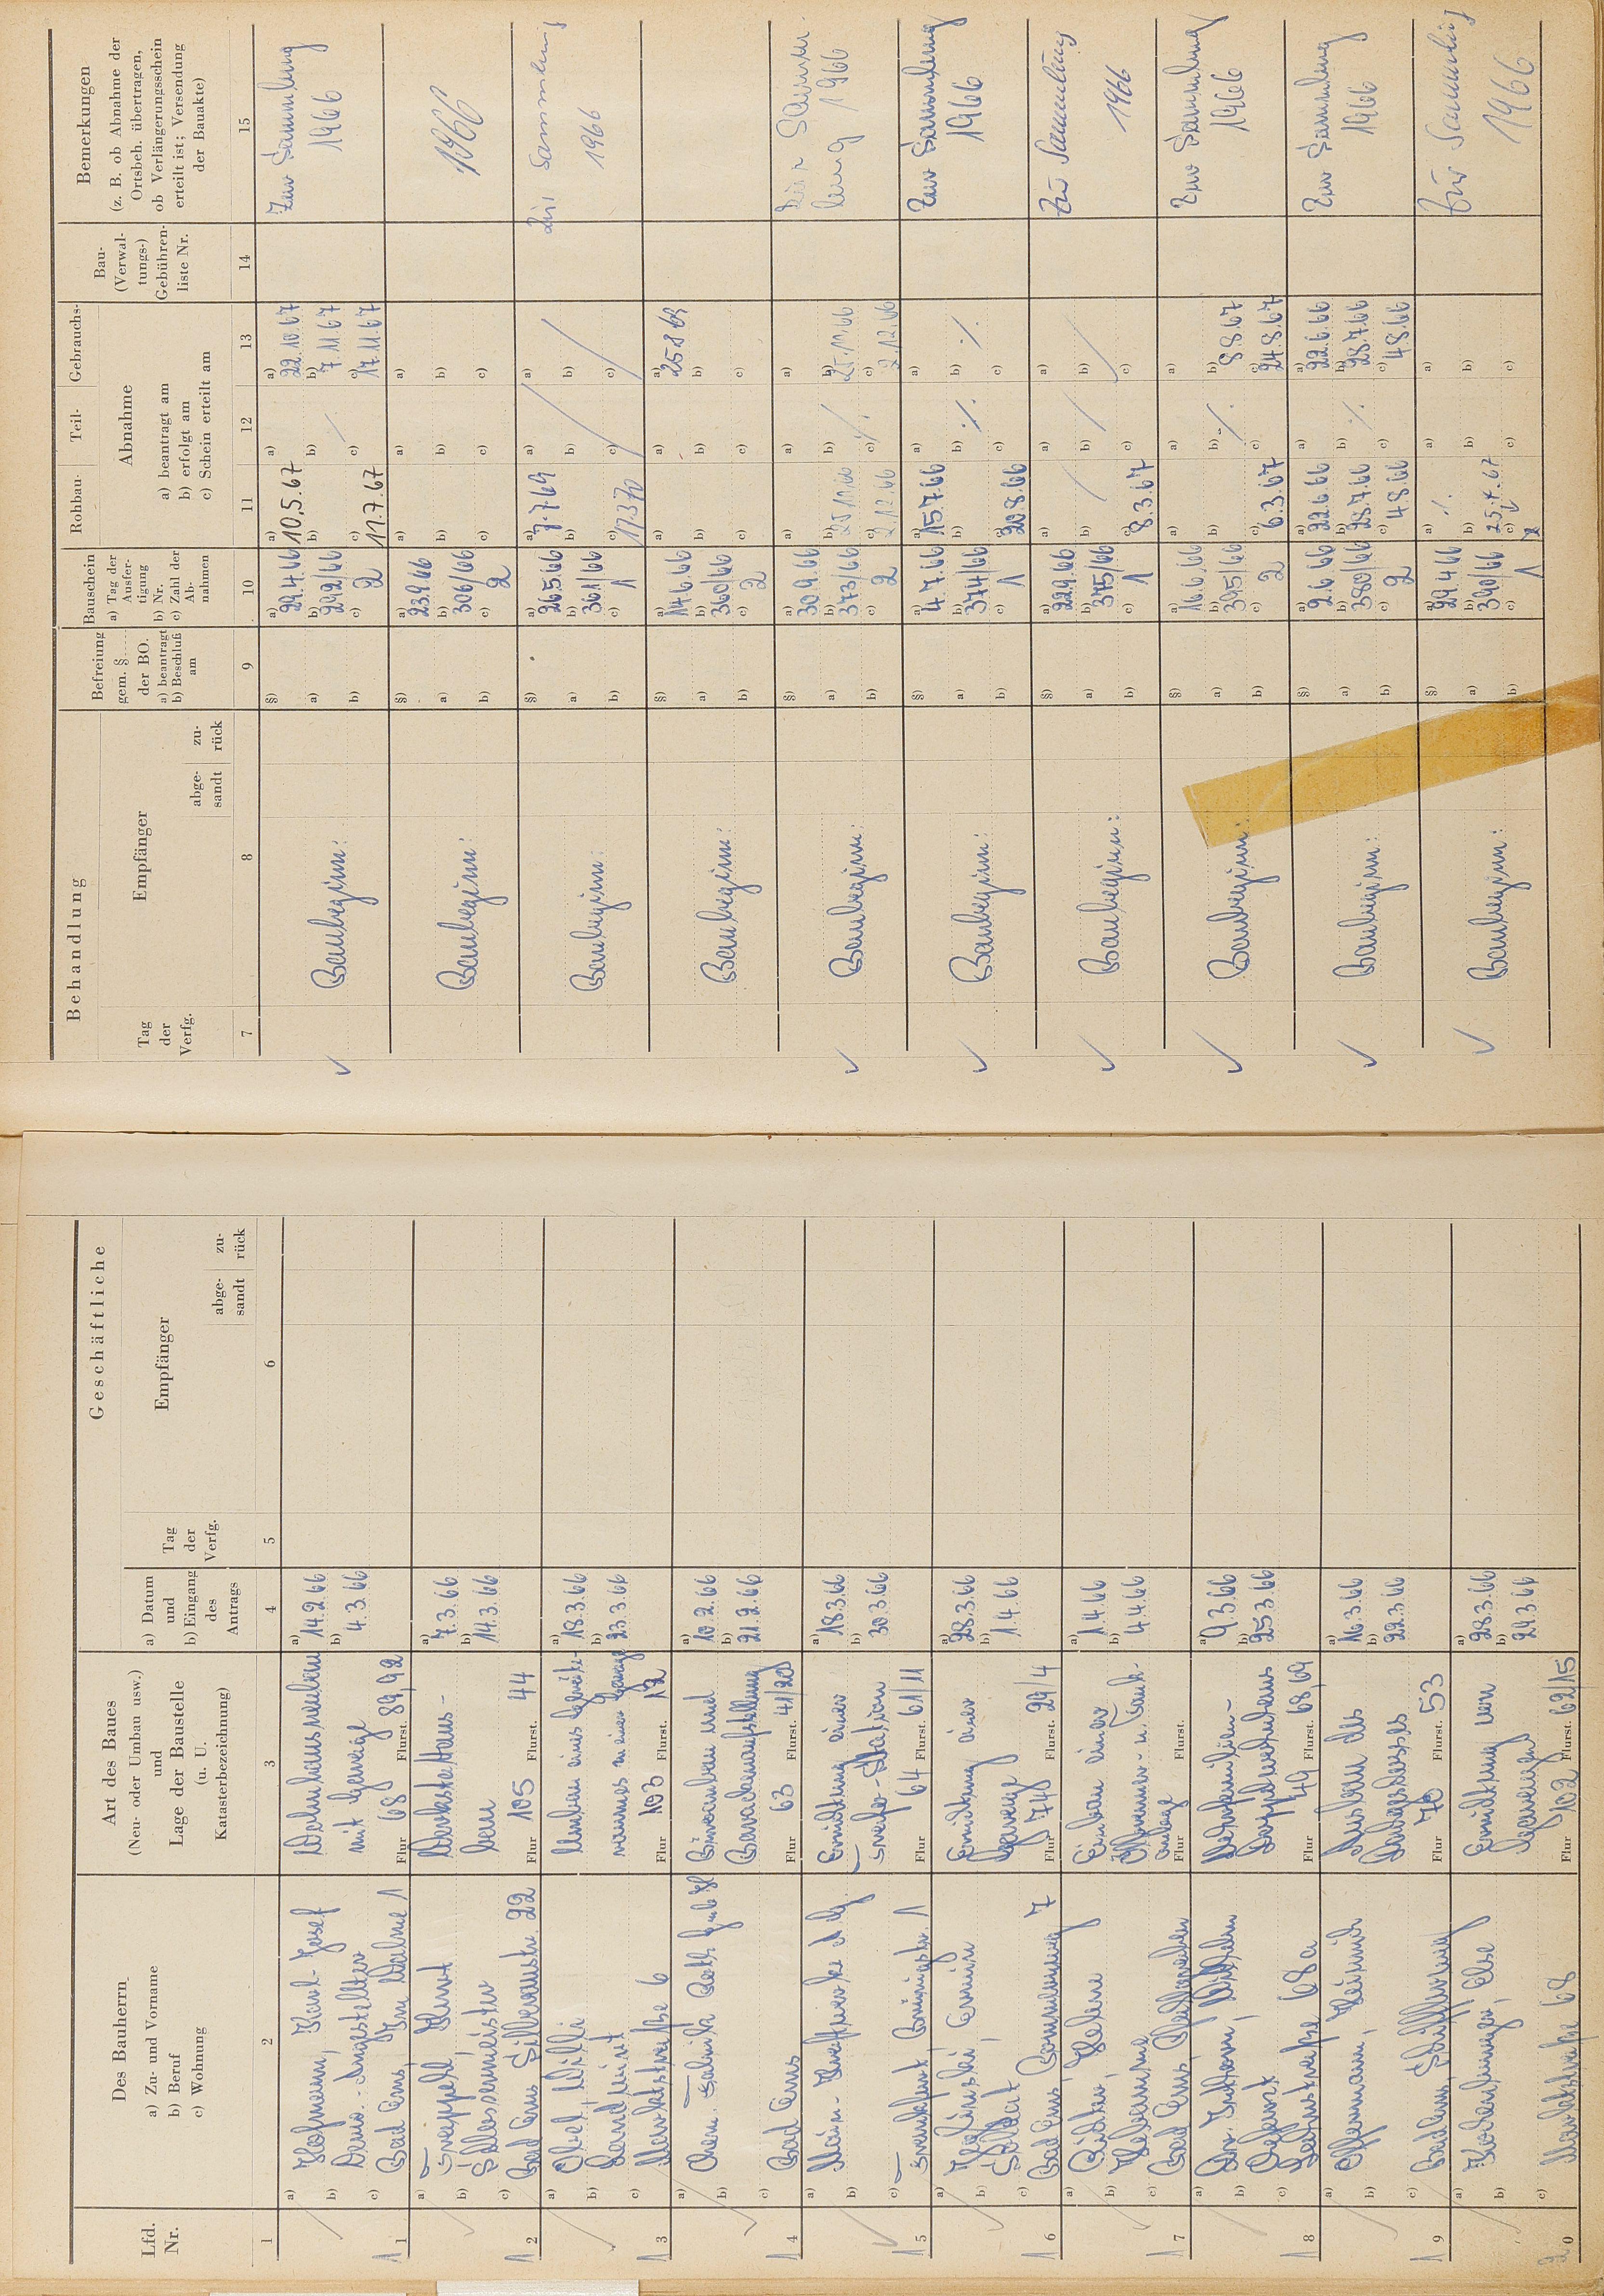 Geschäftliche
Lfd.
Nr.
Des Bauherrn
a) Zu- und Vorname
b) Beruf
c) Wohnung
Art des Baues
(Neu- oder Umbau usw.)
und
Lage der Baustelle
(u. U.
Katasterbezeichnung)
a) Datum
und
b) Eingang
des
Antrags
Tag
der
Verfg.
Empfänger
abge-
sandt
zu-
rück
1
2
3
4
5
6
1 1
a) Hofmann, Karl-Josef
b)
c) Bad Ems
Wohnhausneubau
mit Garage
Flur 68 Flurst. 89,92
a) 14.2.66
b) 4.3.66
1 2
a) Kurt
b)
c) Bad Ems Silberaustr 22
Werkstatthaus-
bau
Flur 105 Flurst. 44
a) 7.3.66
b) 14.3.66
1 3
a) Willi
b)
c) Marktstraße 6
Umbau eines
raumes zu einer Garage
Flur 103 Flurst. 12
a) 18.3.66
b) 23.3.66
1 4
a) Chem. Fabrik
b)
c) Bad Ems
Büroanbau und
Barackenaufstellung
Flur 63 Flurst. 41/20
a) 10.2.66
b) 21.2.66
1 5
a) Main-Kraftwerke AG
b)
c) Frankfurt
Errichtung einer
Trafo-Station
Flur 64 Flurst. 61/11
a) 18.3.66
b) 30.3.66
1 6
a) Erwin
b) Soldat
c) Bad Ems 7
Errichtung einer
Garage
Flur 74g Flurst. 29/4
a) 28.3.66
b) 1.4.66
1 7
a) Helene
b) Hebamme
c) Bad Ems
Einbau einer
Ölbrenner- u. Tank-
anlage
Flur Flurst.
a) 1.4.66
b) 4.4.66
1 8
a) Wilhelm
b)
c) 68a
Mehrfamilien-
Doppelwohnhaus
Flur 49 Flurst. 68,69
a) 9.3.66
b) 25.3.66
1 9
a) Offermann, Heinrich
b)
c) Bad Ems,
Ausbau des
Dachgeschosses
Flur 70 Flurst. 53
a) 16.3.66
b) 22.3.66
2 0
a) Else
b)
c) Marktstraße 68
Errichtung von
Garagen
Flur 102 Flurst. 62/15
a) 28.3.66
b) 29.3.66
Behandlung
Tag
der
Verfg.
Empfänger
abge-
sandt
zu-
rück
Befreiung
gem. §
der BO.
a) beantragt
b) Beschluß
am
Bauschein
a) Tag der
Ausfer-
tigung
b) Nr.
c) Zahl der
Ab-
nahmen
Rohbau- Teil- Gebrauchs-
Abnahme
a) beantragt am
b) erfolgt am
c) Schein erteilt am
Bau-
(Verwal-
tungs-)
Gebühren-
liste Nr.
Bemerkungen
(z. B. ob Abnahme der
Ortsbeh. übertragen,
ob Verlängerungsschein
erteilt ist; Versendung
der Bauakte)
7
8
9
10
11
12
13
14
15
Baubeginn:
§)
a)
b)
a) 29.4.66
b) 292/66
c) 2
a) 10.5.67
b)
c) 11.7.67
a)
b)
c)
a) 22.10.67
b) 7.11.67
c) 17.11.67
Zur Sammlung
1966
Baubeginn:
§)
a)
b)
a) 23.9.66
b) 306/66
c) 2
a)
b)
c)
a)
b)
c)
a)
b)
c)
1966
Baubeginn:
§)
a)
b)
a) 26.5.66
b) 361/66
c) 1
a) 7.7.69
b)
c) 17.3.70
a)
b)
c)
a)
b)
c)
Zur Sammlung
1966
Baubeginn:
§)
a)
b)
a) 14.6.66
b) 360/66
c) 2
a)
b)
c)
a)
b)
c)
a) 25.8.69
b)
c)
Baubeginn:
§)
a)
b)
a) 30.9.66
b) 373/66
c) 2
a)
b) 25.11.66
c) 2.12.66
a)
b)
c)
a)
b) 25.11.66
c) 2.12.66
Zur Samm-
lung 1966
Baubeginn:
§)
a)
b)
a) 4.7.66
b) 374/66
c) 1
a) 15.7.66
b)
c) 20.8.66
a)
b) ./.
c)
a)
b) ./.
c)
Zur Sammlung
1966
Baubeginn:
§)
a)
b)
a) 22.9.66
b) 375/66
c) 1
a)
b)
c) 8.3.67
a)
b)
c)
a)
b)
c)
Zur Sammlung
1966
Baubeginn:
§)
a)
b)
a) 16.6.66
b) 395/66
c) 2
a)
b)
c) 6.3.67
a)
b) ./.
c)
a)
b) 8.8.67
c) 24.8.67
Zur Sammlung
1966
Baubeginn:
§)
a)
b)
a) 2.6.66
b) 380/66
c) 2
a) 22.6.66
b) 28.7.66
c) 4.8.66
a)
b) ./.
c)
a) 22.6.66
b) 28.7.66
c) 4.8.66
Zur Sammlung
1966
Baubeginn:
§)
a)
b)
a) 29.4.66
b) 390/66
c) 1
a) ./.
b) 25.4.67
c)
a)
b)
c)
a)
b)
c)
Zur Sammlung
1966